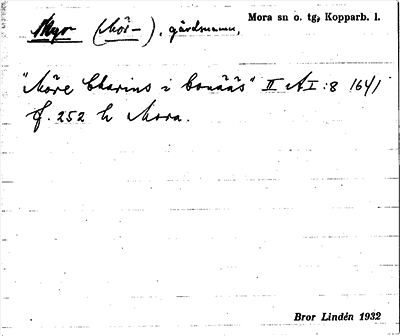 Myr (Mör-), gårdsnamn,
Mora sn o. tg, Kopparb. l.
"Möre Charins i Bonäås" II AI:8 1641
f. 252 h Mora.
Bror Lindén 1932